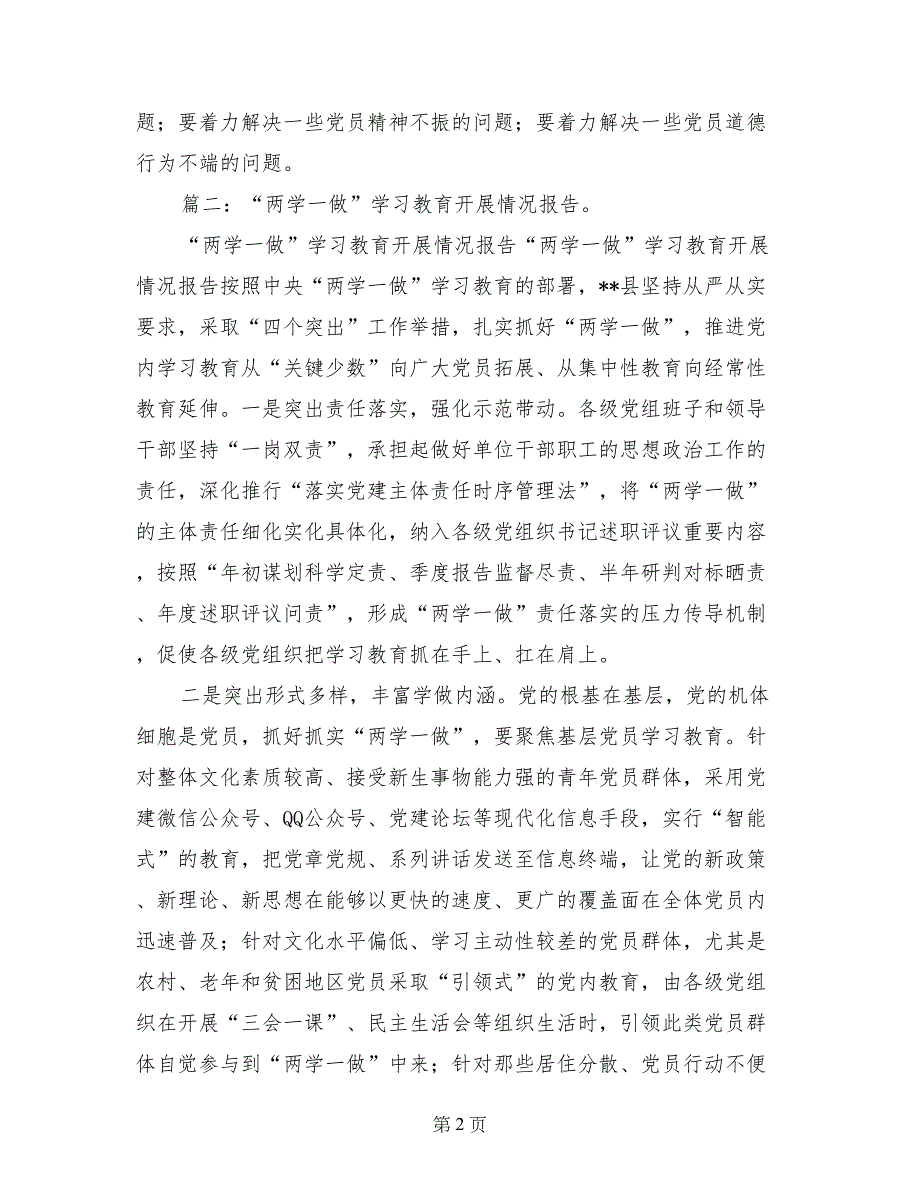 题；要着力解决一些党员精神不振的问题；要着力解决一些党员道德
行为不端的问题。
篇二：“两学一做”学习教育开展情况报告。
“两学一做”学习教育开展情况报告“两学一做”学习教育开展
情况报告按照中央“两学一做”学习教育的部署，**县坚持从严从实
要求，采取“四个突出”工作举措，扎实抓好“两学一做”，推进党
内学习教育从“关键少数”向广大党员拓展、从集中性教育向经常性
教育延伸。一是突出责任落实，强化示范带动。各级党组班子和领导
干部坚持“一岗双责”，承担起做好单位干部职工的思想政治工作的
责任，深化推行“落实党建主体责任时序管理法”，将“两学一做”
的主体责任细化实化具体化，纳入各级党组织书记述职评议重要内容
，按照“年初谋划科学定责、季度报告监督尽责、半年研判对标晒责
、年度述职评议问责”，形成“两学一做”责任落实的压力传导机制
，促使各级党组织把学习教育抓在手上、扛在肩上。
二是突出形式多样，丰富学做内涵。党的根基在基层，党的机体
细胞是党员，抓好抓实“两学一做”，要聚焦基层党员学习教育。针
对整体文化素质较高、接受新生事物能力强的青年党员群体，采用党
建微信公众号、QQ公众号、党建论坛等现代化信息手段，实行“智能
式”的教育，把党章党规、系列讲话发送至信息终端，让党的新政策
、新理论、新思想在能够以更快的速度、更广的覆盖面在全体党员内
迅速普及；针对文化水平偏低、学习主动性较差的党员群体，尤其是
农村、老年和贫困地区党员采取“引领式”的党内教育，由各级党组
织在开展“三会一课”、民主生活会等组织生活时，引领此类党员群
体自觉参与到“两学一做”中来；针对那些居住分散、党员行动不便
第 2 页